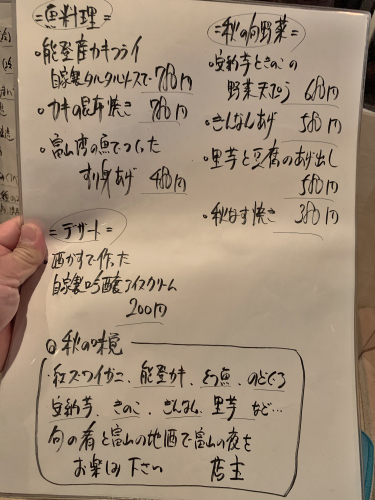 =魚料理=
・能登産カキフライ
自家製タルタルソースで 780円
・カキの昆布焼き 780円
・富山湾の魚でつくった
すり身あげ 480円
=デザート=
・酒かすで作った
自家製吟醸アイスクリーム
200円
=秋の旬野菜=
・安納芋ときのこの
野菜天ぷら 680円
・ぎんなんあげ 580円
・里芋と豆腐のあげ出し
580円
・秋なす焼き 380円
◎秋の味覚
・紅ズワイガニ、能登カキ、魚、のどぐろ
安納芋、きのこ、ぎんなん、里芋 など…
旬の肴と富山の地酒で富山の夜を
お楽しみ下さい 店主